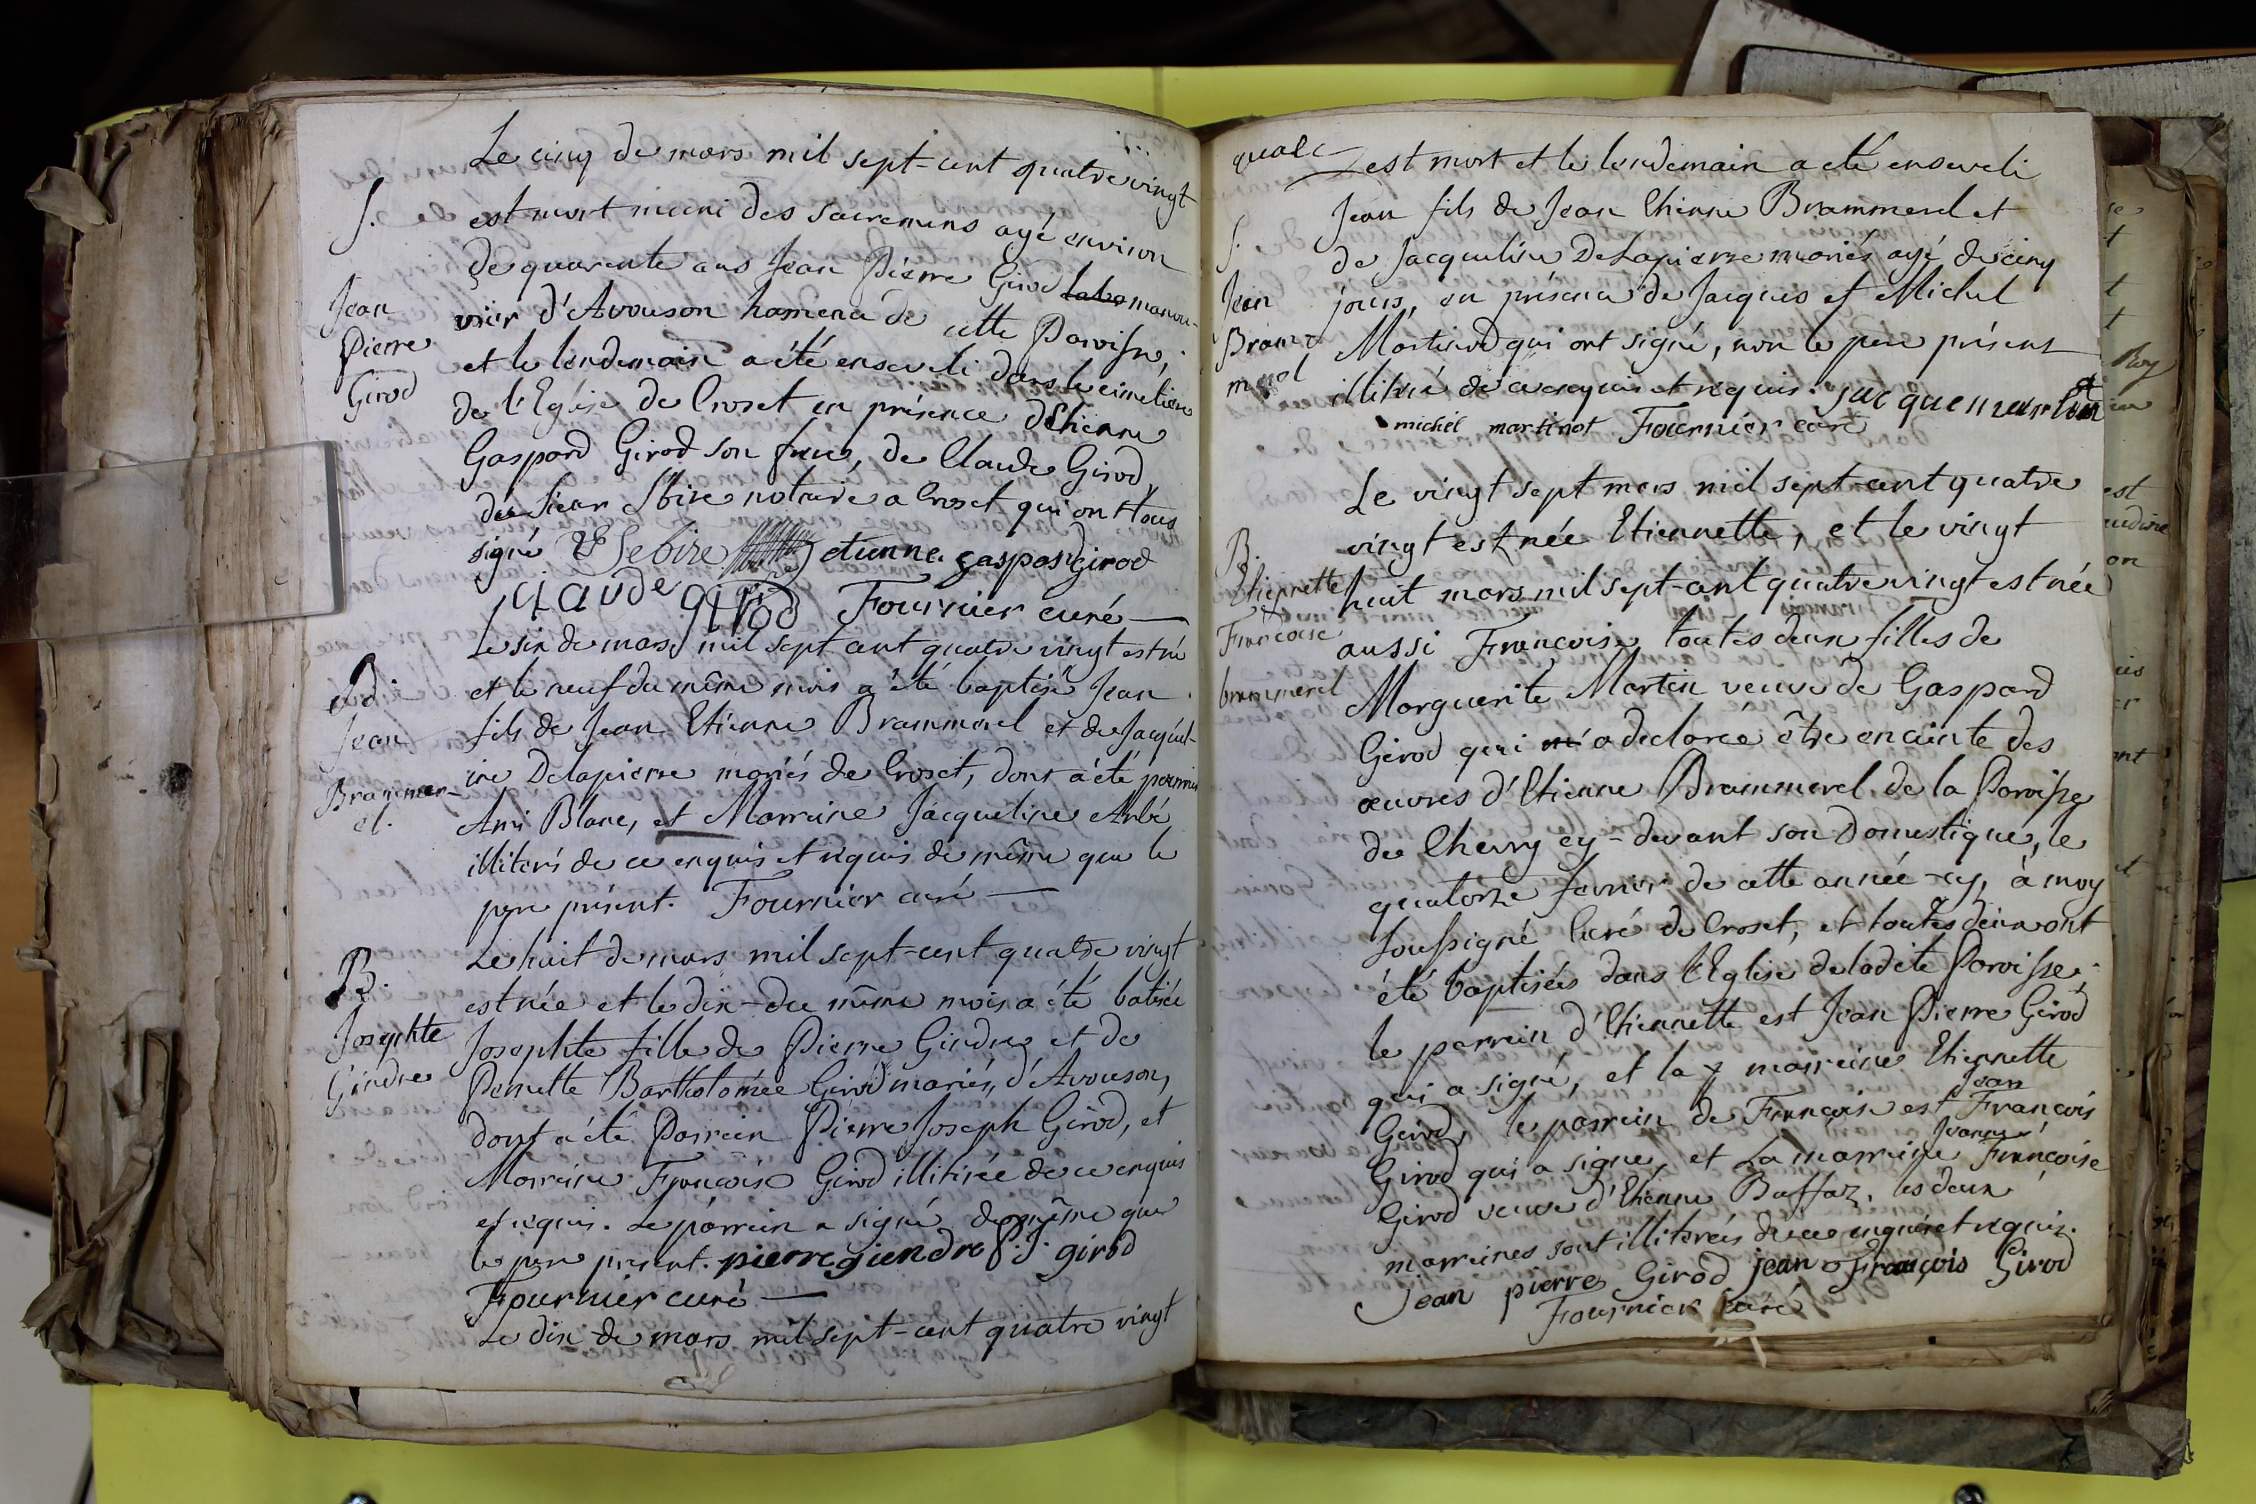 Le cinq de mars mil sept-cent quatre vingt
S.
est mort muni des sacremens agé environ
de quarente ans Jean Pierre Girod labo manou-
Jean
Pierre
Girod
vrier d'Avouson hameau de cette Paroisse,
et le lendemain a été enseveli dans le cimetiere
de l'Eglise de Croset en présence d'Etienne
Gaspard Girod son frere, de Claude Girod,
du Sieur Sbire notaire a Croset qui ont tous
signé Sebire etienne gaspard girod
claude girod Fournier curé
Le six de mars mil sept cent quatre vingt est né
B.
Jean
Brammer-
el.
et le neuf du même mois a été baptisé Jean
fils de Jean Etienne Brammerel et de Jacquel-
ine Delapierre mariés de Croset, dont a été parrain
Ami Blanc, et Marraine Jacqueline
illiterés de ce enquis et requis de même que le
pere présent. Fournier curé
Le huit de mars mil sept-cent quatre vingt
B.
Josephte
Gindre
est née et le dix du même mois a été batisée
Josephte fille de Pierre Gindre et de
Pernette Bartholomée Girod mariés, d'Avouson,
dont a été Parrein Pierre Joseph Girod, et
Marreine Françoise Girod illitirée de ce enquis
et requis. Le parrein a signé de même que
le pere présent. pierre giendre P. J. girod
Fournier curé
Le dix de mars mil sept-cent quatre vingt
est mort et le lendemain a eté enseveli
S.
Jean
Bram
merel
Jean fils de Jean Etienne Brammerel et
de Jacqueline DeLapierre mariés agé de cinq
jours, en présence de Jacques et Michel
Martinod qui ont signé, non le pere présent
illitiré de ce enquis et requis.
michel martinot Fournier curé
Le vingt sept mars mil sept-cent quatre
B.
Etiennette
Francoise
brammerel
vingt est née Etiennette, et le vingt
huit mars mil sept-cent quatre vingt est née
aussi Françoise, toutes deux filles de
Marguerite Martin veuve de Gaspard
Girod qui m' a declarée être enceinte des
œuvres d'Etienne Brammerel de la Paroisse
de Chevry cy-devant son Domestique, le
quatorze fevrier de cette année cy, à moy
soussigné Curé de Croset, et toutes deux ont
été baptisées dans l'Eglise de ladite Paroisse;
le parrein d'Etiennette est Jean Pierre Girod
qui a signé, et la marreine Etiennette
Girod, le parrein de Françoise est Jean François
Girod qui a signé, et La marreine Françoise
Girod veuve d'Etienne Baffaz. les deux
marreines sont illiterées de ce enquis et requis.
jean pierre Girod jean françois Girod
Fournier curé